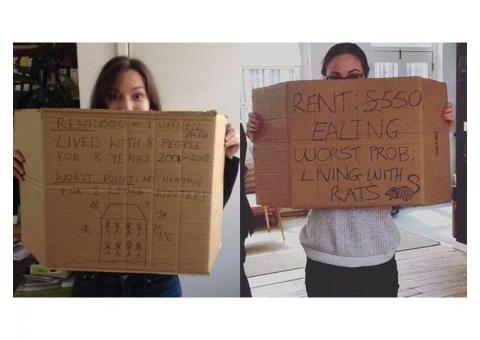 RENT: 500 TUFFNELL
PARK
LIVED WITH 8 PEOPLE
FOR 8 YEARS 2012
WORST POINT: NO HEATING
FOR WINTERS!
RENT: £550
EALING
WORST PROB:
LIVING WITH
RATS